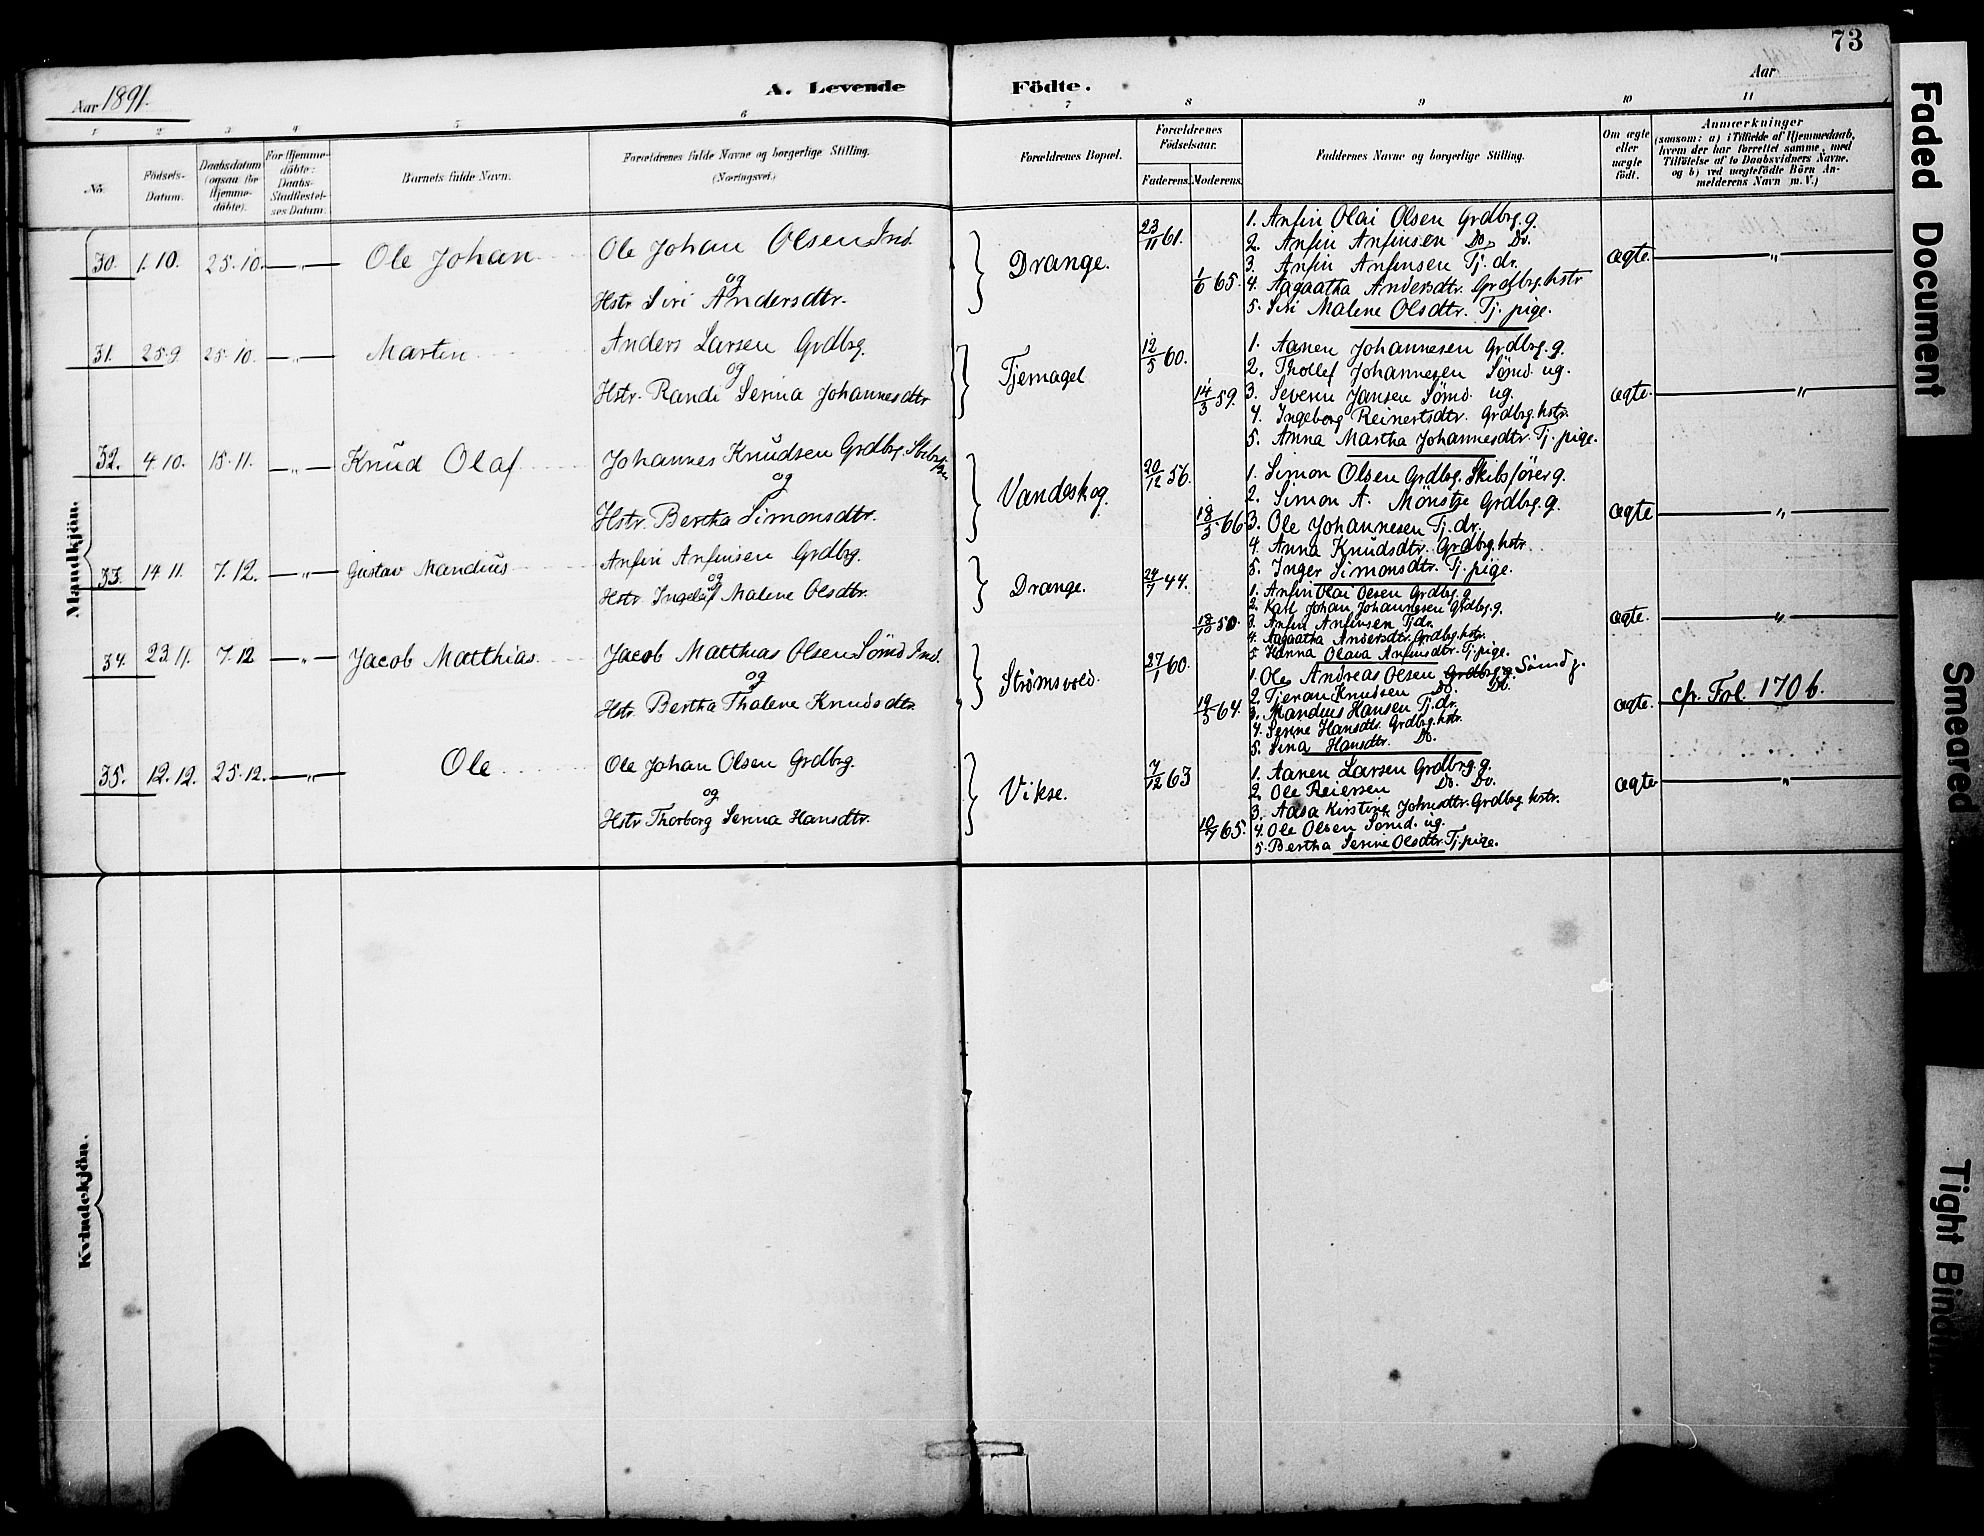 73
Aar 1891.
A. Levende Födte.
Aar
1 2 3 4 5 6 7 8 9 10 11
No.
Födsels-Datum.
Daabsdatum (ogsaa for Hjemme-döbte).
For Hjemme-döbte: Daabs-Stadfæstel-ses Datum.
Barnets fulde Navn.
Forældrenes fulde Navne og borgerlige Stilling. (Næringsvei.)
Forældrenes Bopæl.
Forældrenes Födselsaar.
Faderens. Moderens.
Faddernes Navne og borgerlige Stilling.
Om ægte eller uægte födt.
Anmærkninger
(saasom: a) i Tilfælde af Hjemmedaab,
hvem der har forrettet samme, med
Tilföielse af to Daabsvidners Navne.
og b) ved uægtefödte Börn An-
melderens Navn m. V.)
Mandkjön.
30. 1.10. 25.10. — " — Ole Johan
Ole Johan Olsen Ind.
og
Hstr Siri Andersdtr.
Drange.
23/11 61.
1/6 65.
1. Anfin Olai Olsen Grdbrg. g.
2. Anfin Anfinsen Do. Do.
3. Anfin Anfinsen Tj. dr.
4. Aagaatha Andersdtr. Grdbrg. hstr
5. Siri Malene Olsdtr. Tj. pige.
ægte. — " —
31. 25.9. 25.10. — " — Marten
Anders Larsen Grdbrg.
og
Hstr. Randi Serina Johannesdtr
Tjernagel
12/5 60.
14/3 59.
1. Aanen Johannesen Grdbrg. g.
2. Thollef Johannesen Sømd. ug.
3. Severin Jansen Sømd. ug.
4. Ingeborg Reinertsdtr. Grdbrg. hstr.
5. Anna Martha Johannesdtr. Tj. pige.
ægte. — " —
32. 4.10. 15.11. — " — Knud Olaf
Johannes Knudsen Grdbrg.
og
Hstr. Bertha Simonsdtr.
Vandeskog.
20/12 56.
18/3 66
1. Simon Olsen Grdbrg. Skibsfører g.
2. Simon A. Mönstre Grdbrg. g.
3. Ole Johannesen Tj. dr.
4. Anna Knudsdtr. Grdbrg. hstr.
5. Inger Simonsdtr. Tj. pige.
ægte — " —
33. 14.11. 7.12. — " — Gustav Mandius
Anfin Anfinsen Grdbrg.
og
Hstr Malene Olsdtr.
Drange.
24/7 44.
50.
1. Anfin Olai Olsen Grdbrg. g.
2. Karl Johan Johannesen Grdbrg. g.
3. Anfin Anfinsen Tj. dr.
4. Aagaatha Andersdtr. Grdbrg. hstr.
5. Hanna Olava Anfinsdtr. Tj. pige.
ægte. — " —
34. 23.11. 7.12 — " — Jacob Matthias.
Jacob Matthias Olsen Sømd. Ind.
og
Hstr. Bertha Thalene Knudsdtr
Strømsvold.
27/1 60.
19/3 64.
1. Ole Andreas Olsen Grdbrg. g. Sømd g.
2. Tjeran Knudsen Do. Do.
3. Mandius Hansen Tj. dr.
4. Serine Hansdtr. Grdbrg. hstr.
5. Sina Hansdtr. Do.
ægte. cfr. Fol. 170 b.
35. 12.12. 25.12. — " — Ole
Ole Johan Olsen Grdbrg.
og
Hstr Thorborg Serina Hansdtr.
Vikse.
7/12 63
10/7 65.
1. Aanen Larsen Grdbrg. g.
2. Ole Reiersen Do. Do.
3. Aasa Kirstine Johnsdtr. Grdbrg. hstr.
4. Ole Olsen Sømd. ug.
5. Bertha Serine Olsdtr Tj. pige.
ægte — " —
Kvindekjön.
Faded Document
Smeared
Tight